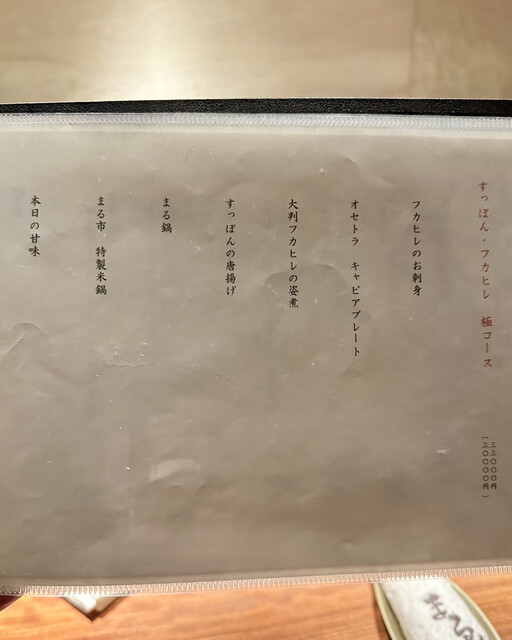 すっぽん・フカヒレ　極コース
三三〇〇〇円
(三〇〇〇〇円)
フカヒレのお刺身
オセトラ　キャビアプレート
大判フカヒレの姿煮
すっぽんの唐揚げ
まる鍋
まる市　特製米鍋
本日の甘味